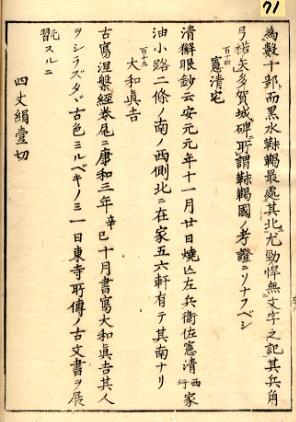 71
為數十部而黑水靺鞨最處其北尤勁悍無文字之記其兵角
弓楛矢多賀城碑ニ所謂靺鞨國ノ考證ニソナフベシ
百十四
憲清宅
清獬眼鈔云安元元年十一月廿日燒亡左兵衛佐憲清西行家
油小路二條ノ南ノ西側北ニ在家五六軒有テ其南ナリ
百十五
大和真吉
古寫涅槃經卷尾ニ康和三年辛巳十月書寫大和真吉其人
ヲシラズタヾ古色ミルベキノミ一日東寺所傳ノ古文書ヲ展
翫スルニ
四丈絹壹切